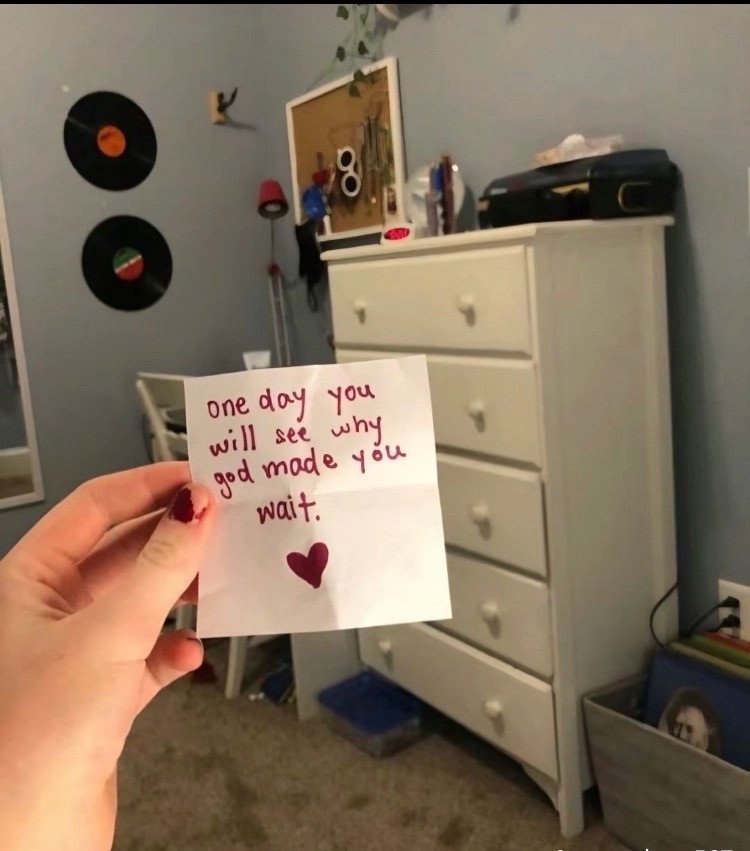 one day you
will see why
god made you
wait.